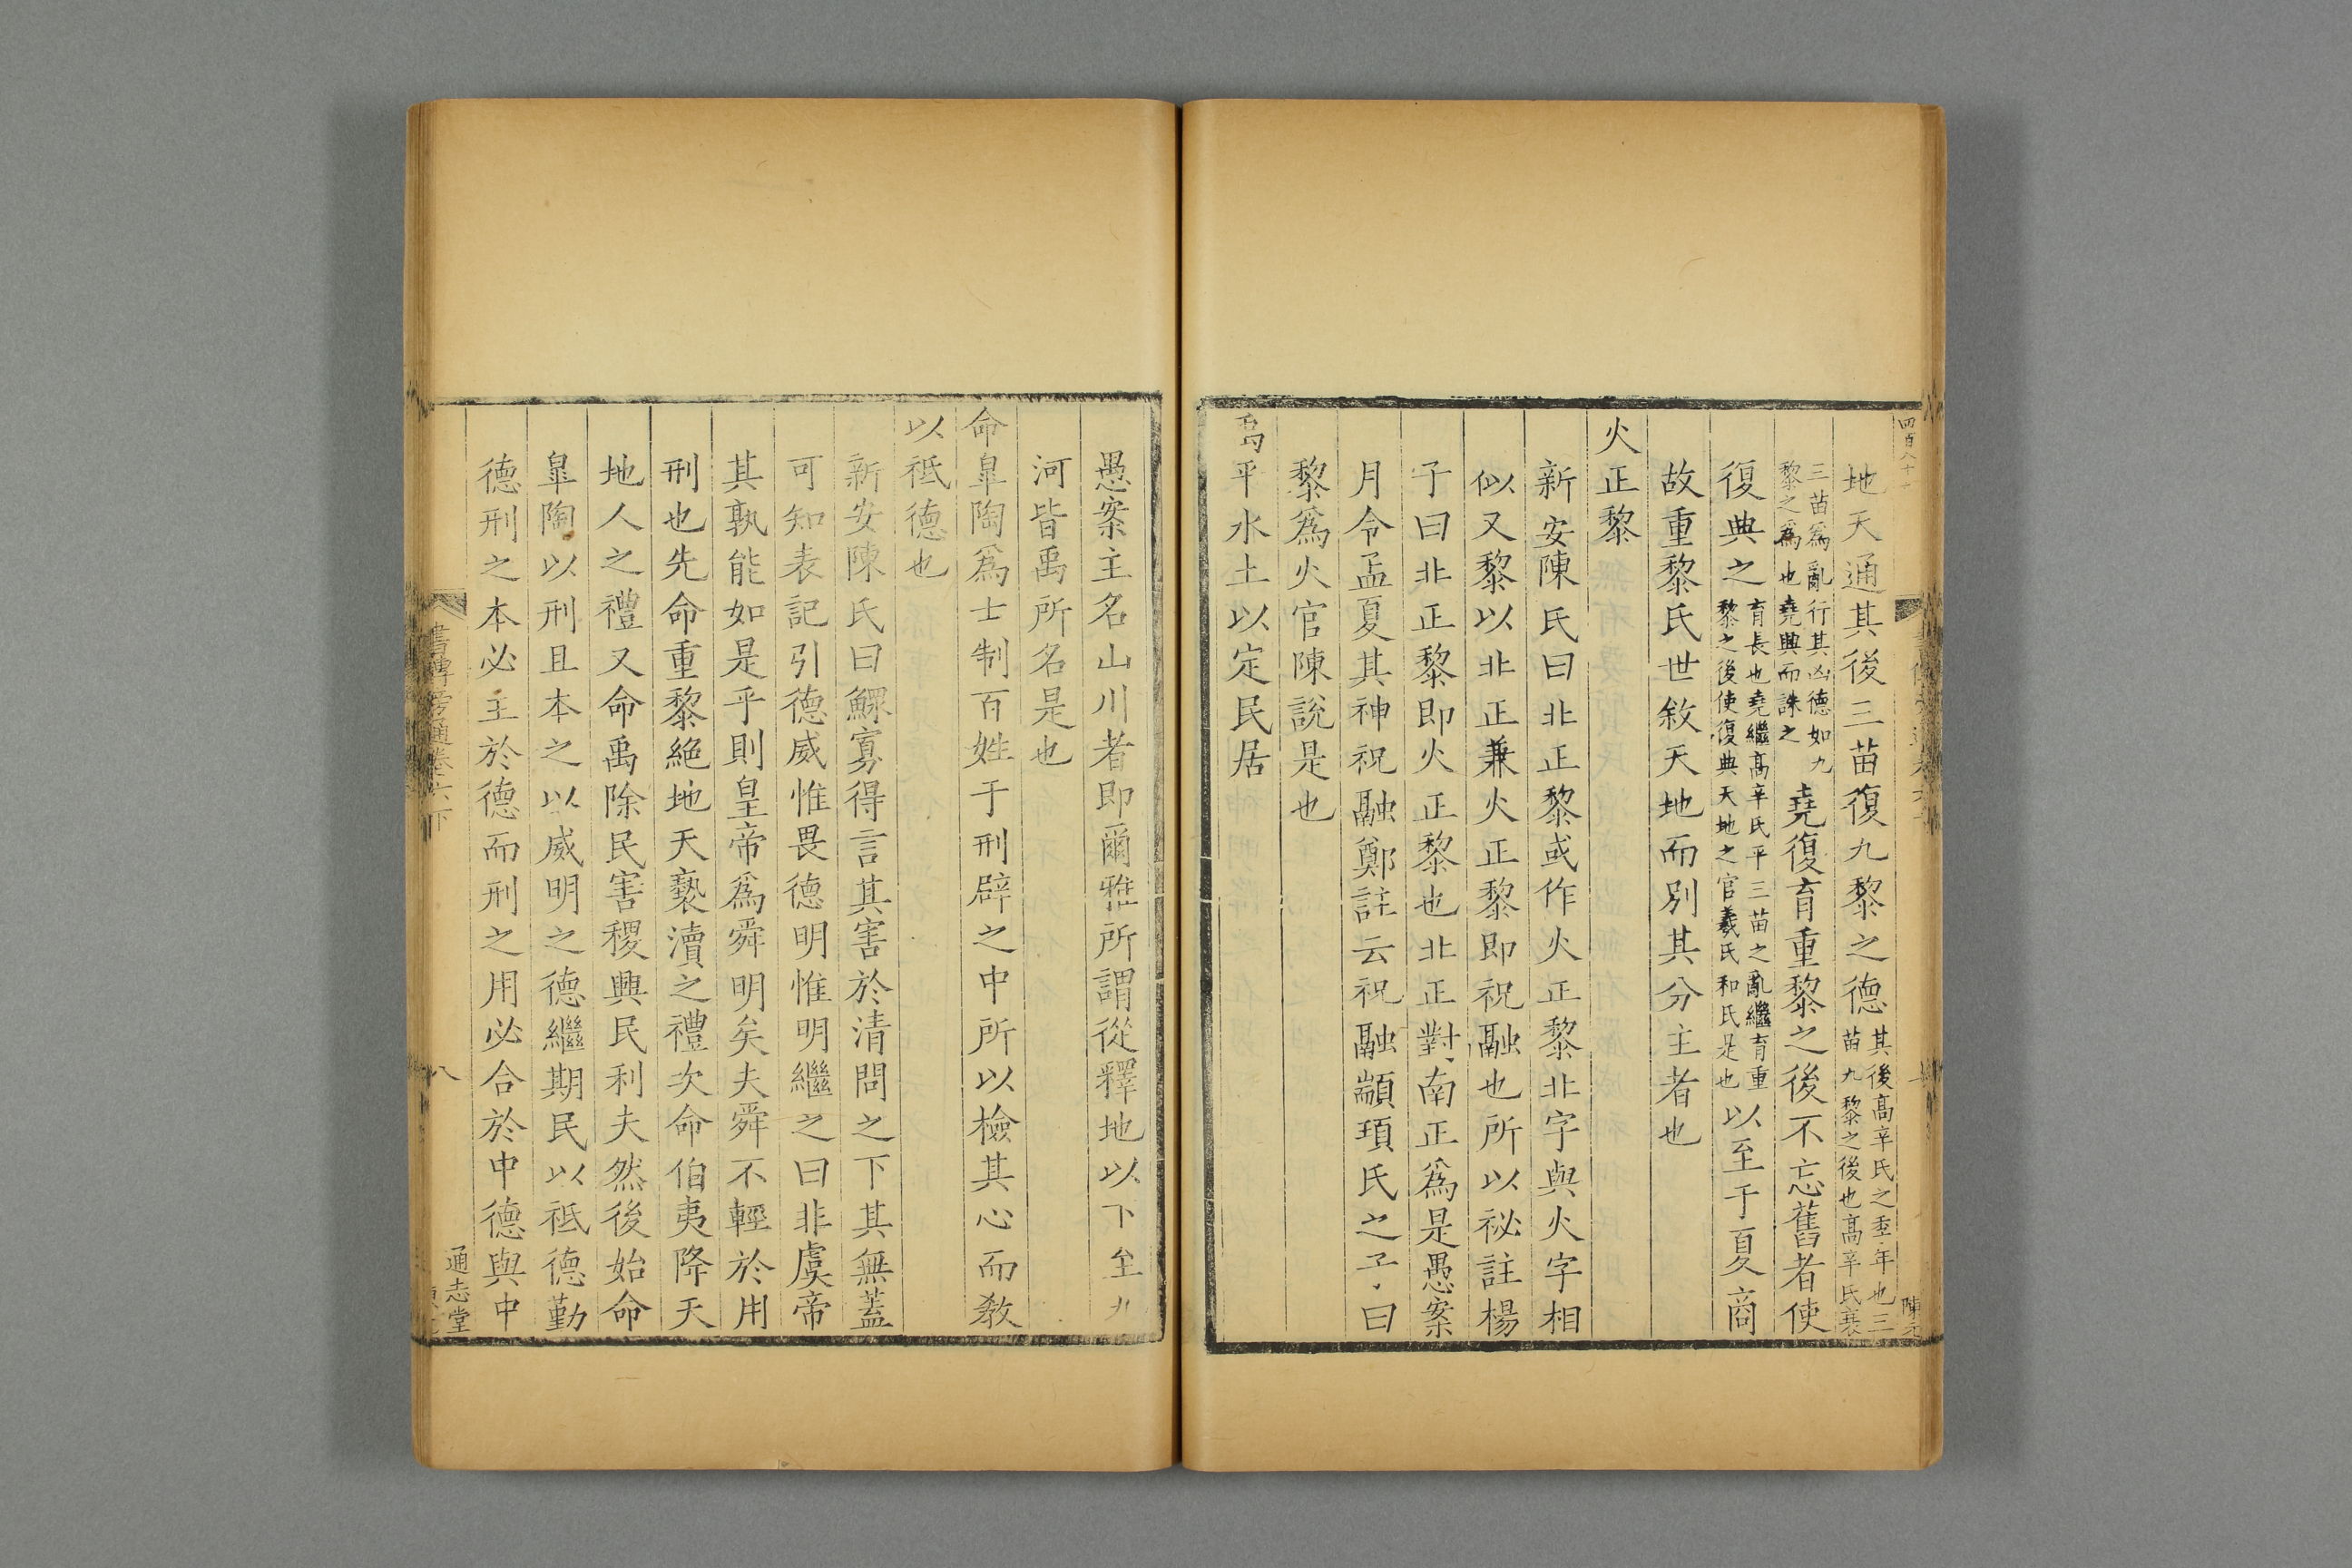 四百八十
地天通其後三苗復九黎之德其後高辛氏之季年也三苗九黎之後也高辛氏衰
三苗爲亂行其凶德如九黎之爲也堯興而誅之堯復育重黎之後不忘舊者使
復典之育長也堯繼高辛氏平三苗之亂繼育重黎之後使復典天地之官羲氏和氏是也以至于夏商
故重黎氏世敘天地而別其分主者也
火正黎
新安陳氏曰北正黎或作火正黎北字與火字相
似又黎以北正兼火正黎即祝融也所以祕註楊
子曰北正黎即火正黎也北正對南正爲是愚案
月令孟夏其神祝融鄭註云祝融顓頊氏之子曰
黎爲火官陳說是也
禹平水土以定民居
陳元
愚案主名山川者即爾雅所謂從釋地以下至九
河皆禹所名是也
命皐陶爲士制百姓于刑辟之中所以檢其心而敎
以祗德也
新安陳氏曰鰥寡得言其害於清問之下其無蓋
可知表記引德威惟畏德明惟明繼之曰非虞帝
其孰能如是乎則皇帝爲舜明矣夫舜不輕於用
刑也先命重黎絕地天褻瀆之禮次命伯夷降天
地人之禮又命禹除民害稷興民利夫然後始命
皐陶以刑且本之以威明之德繼期民以祗德勤
德刑之本必主於德而刑之用必合於中德與中
書傳旁通卷六下
八
通志堂